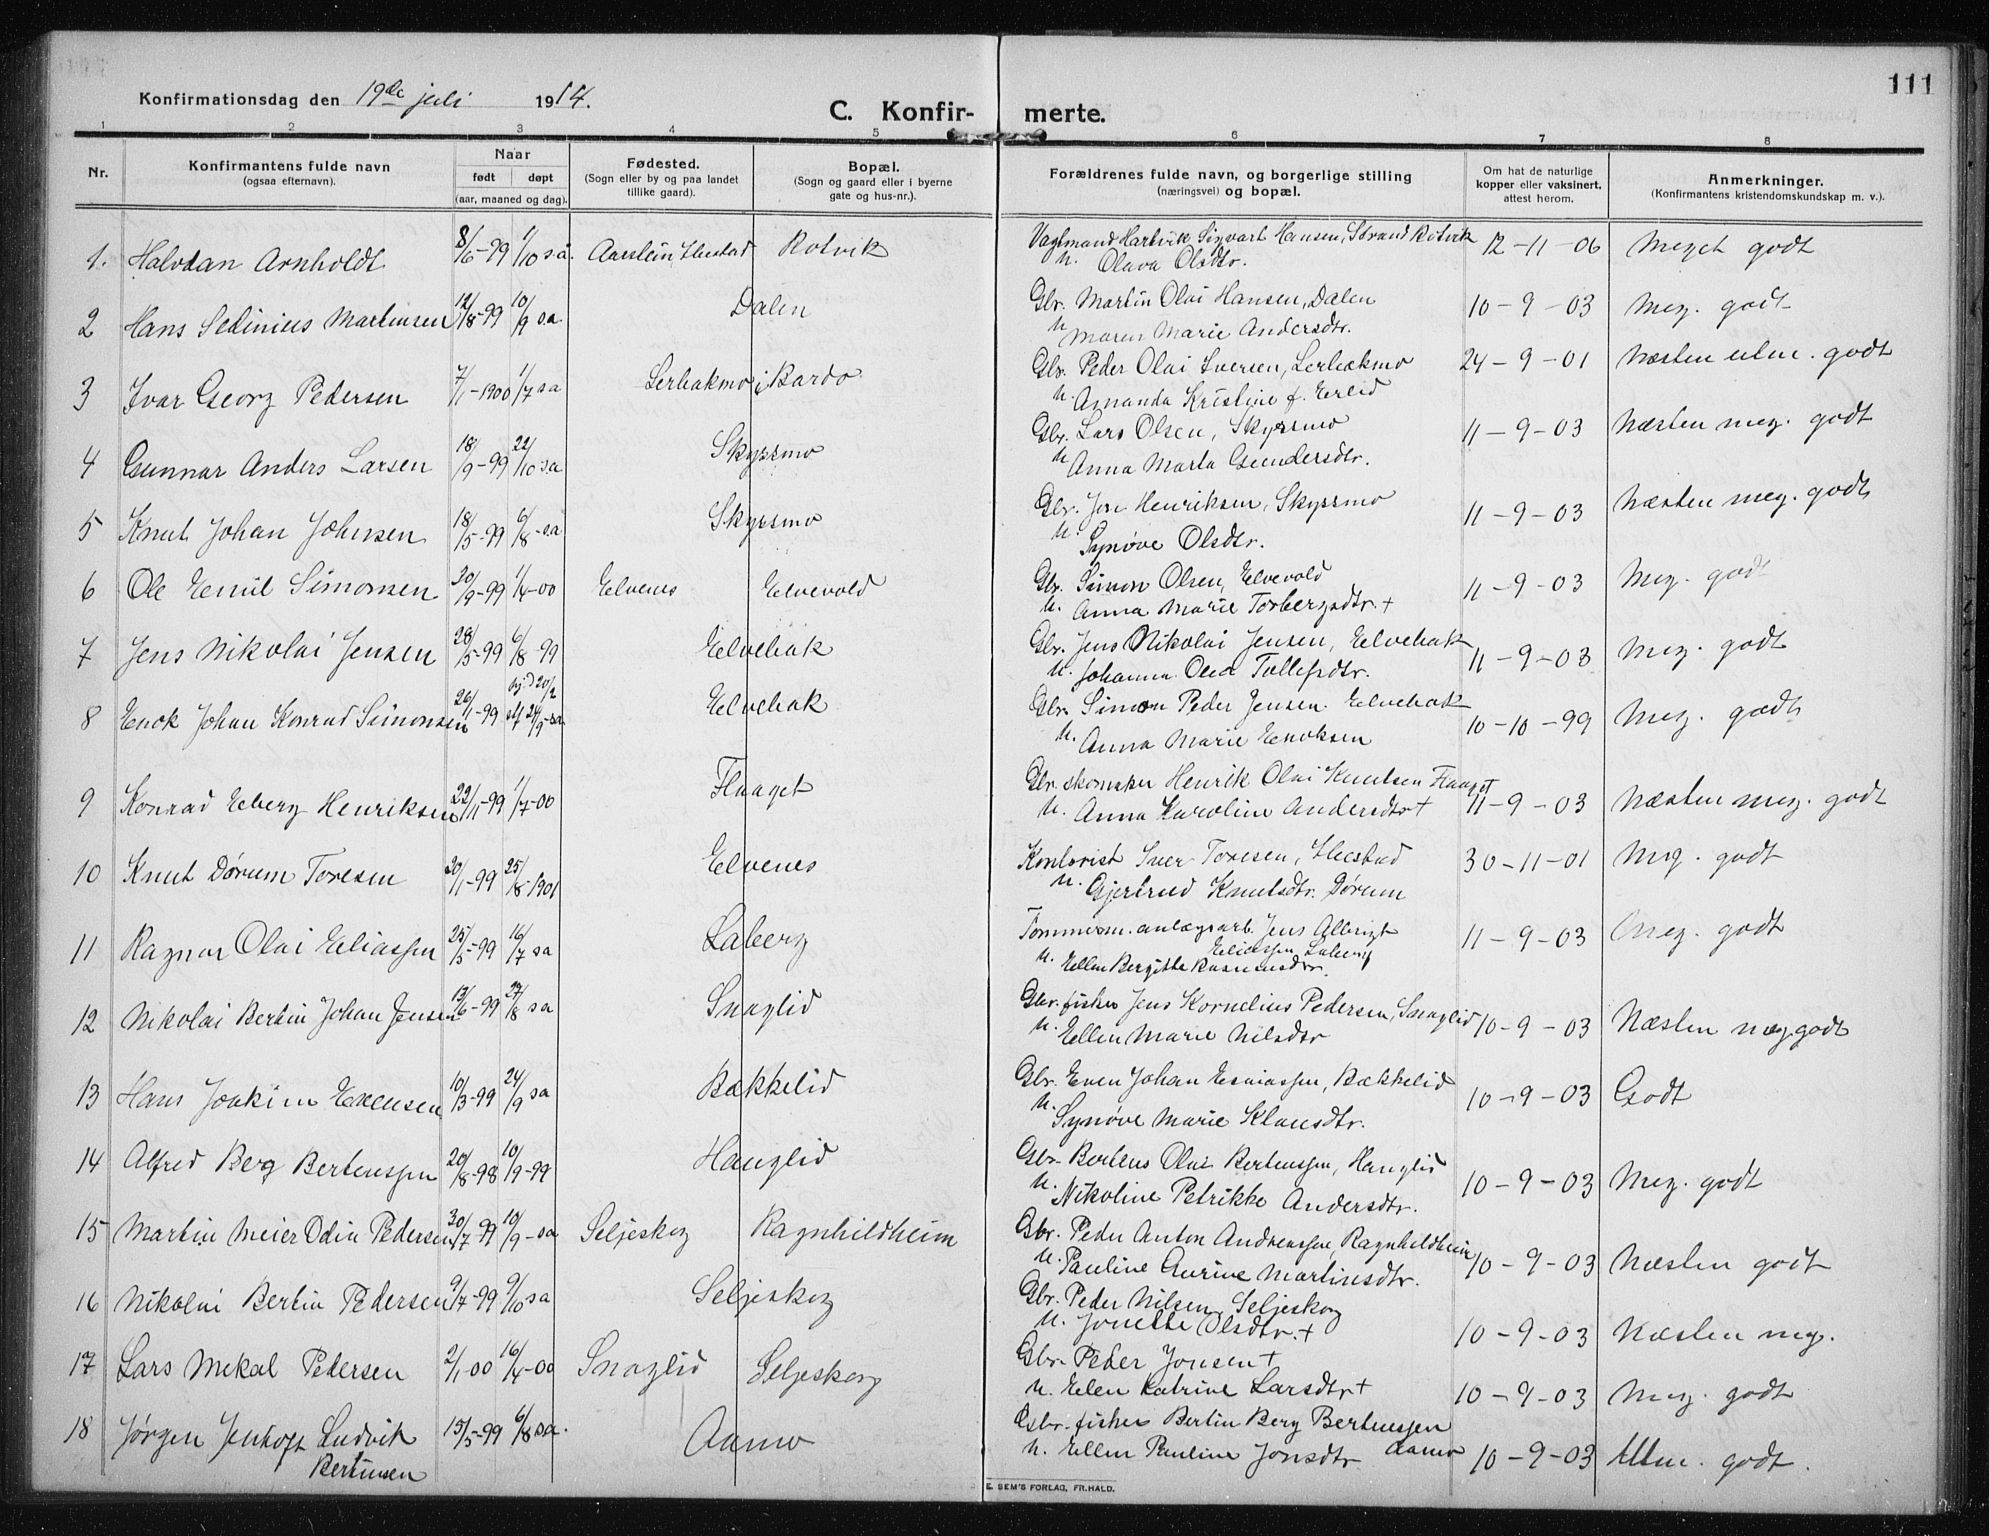 111
Konfirmationsdag den 19de juli 1914.
C. Konfir- merte.
1 2 3 4 5 6 7 8
Nr.
Konfirmantens fulde navn
(ogsaa efternavn).
Naar
født døpt
(aar, maaned og dag).
Fødested.
(Sogn eller by og paa landet
tillike gaard).
Bopæl.
(Sogn og gaard eller i byerne
gate og hus-nr.).
Forældrenes fulde navn, og borgerlige stilling
(næringsvei) og bopæl.
Om hat de naturlige
kopper eller vaksinert,
attest herom.
Anmerkninger.
(Konfirmantens kristendomskundskap m. v.).
1. Halvdan Arnholdt 8/6-99 1/10 s.a. Rotvik Hartvik Sigvart Hansen, Strand Rotvik 12-11-06 Meget godt
u. Olava Olsdtr.
2 Hans Sedinius Martinsen 12/8-99 10/9 s.a. Dalen Gbr. Martin Olai Hansen, Dalen 10-9-03 Meg. godt
u. Maren Marie Andersdtr.
3 Ivar Georg Pedersen 7/1-1900 1/7 sa Lerbakmo i Bardo Gbr. Peder Olai Iversen, Lerbakmo 24-9-01 Næsten utm. godt
u. Amanda Kristine f. Erlid
4 Gunnar Anders Larsen 18/9-99 22/10 s.a Skyrsmo Gbr. Lars Olsen, Skyrsmo 11-9-03 Næsten meg. godt
u. Anna Marta Gundersdtr.
5 Knut Johan Johnsen 18/5-99 6/8-s.a Skyrsmo Gbr. Jon Henriksen, Skyrsmo 11-9-03 Næsten meg. godt
u. Synøve Olsdtr.
6 Ole Emil Simonsen 30/9-99 1/4-00 Elvenes Elvevold Gbr. Simon Olsen, Elvevold 11-9-03 Meg. godt
u. Anna Marie Torbergsdtr. +
7 Jens Nikolai Jensen 28/5-99 6/8-99 Elvebak Gbr. Jens Nikolai Jensen, Elvebak 11-9-03 Meg. godt
u. Johanna Tollefsdtr.
8 Enok Johan Konrad Simonsen 26/1-99 hj.d 20/2 24/9-sa Elvebak Gbr. Simon Peder Jensen Elvebak 10-10-99 Meg. godt
u. Anna Marie Enoksen
9 Konrad Eberg Henriksen 22/11-99 1/7-00 Flaaget Gbr. skomaker Henrik Olai Knutsen Flaaget 11-9-03 Næsten meg. godt
u. Anna Karoline Andersdtr +
10 Knut Dørum Toresen 20/1-99 25/8-1901 Elvenes Kontorist Iver Toresen, 30-11-01 Meg. godt
u. Gjertrud Knutsdtr. Dørum
11 Ragnar Olai Eliassen 25/5-99 16/7 sa Laberg Tømmerm. anlægsarb. Jens Albrigt 11-9-03 Meg. godt
Eliassen Laberg
u. Ellen Bergitte Rasmusdtr.
12 Nikolai Bertin Johan Jensen 13/6-99 27/8 sa Snoglid Gbr. fisker Jens Kornelius Pedersen, Snoglid 10-9-03 Næsten meg. godt
u. Ellen Marie Nilsdtr
13 Hans Joakim Evensen 10/3-99 24/9 sa Bakkelid Gbr. Even Johan Esaiassen, Bakkelid 10-9-03 Godt
u. Synøve Marie Klausdtr.
14 Alfred Berg Bertenssen 20/8-98 10/9-99 Hanglid Gbr. Bertens Olai Bertenssen, Hanglid 10-9-03 Meg. godt
u. Nikoline Petrikke Andersdtr.
15 Martin Meier Odin Pedersen 30/7-99 10/9-sa Seljeskog Ragnhildheim Gbr. Peder Anton Andreassen, Ragnhildheim 10-9-03 Næsten godt
u. Pauline Martinsdtr.
16 Nikolai Bertin Pedersen 9/7-99 9/10 sa Seljeskog Gbr. Peder Nilsen, Seljeskog 10-9-03 Næsten meg.
u. Jonette Olsdtr. +
17 Lars Mekal Pedersen 2/1-00 16/4-00 Snoglid Seljeskog Gbr. Peder Jonsen + 10-9-03 Meg. godt
u. Elen Katrine Larsdtr +
18 Jørgen Jenhoft Ludvik 15/5-99 6/8 sa. Aamo Gbr. fisker Bertin Berg Bertenssen 10-9-03 Utm. godt.
Bertinsen u. Ellen Pauline Jonsdtr Aamo
E. SEM'S FORLAG, FR.HALD.